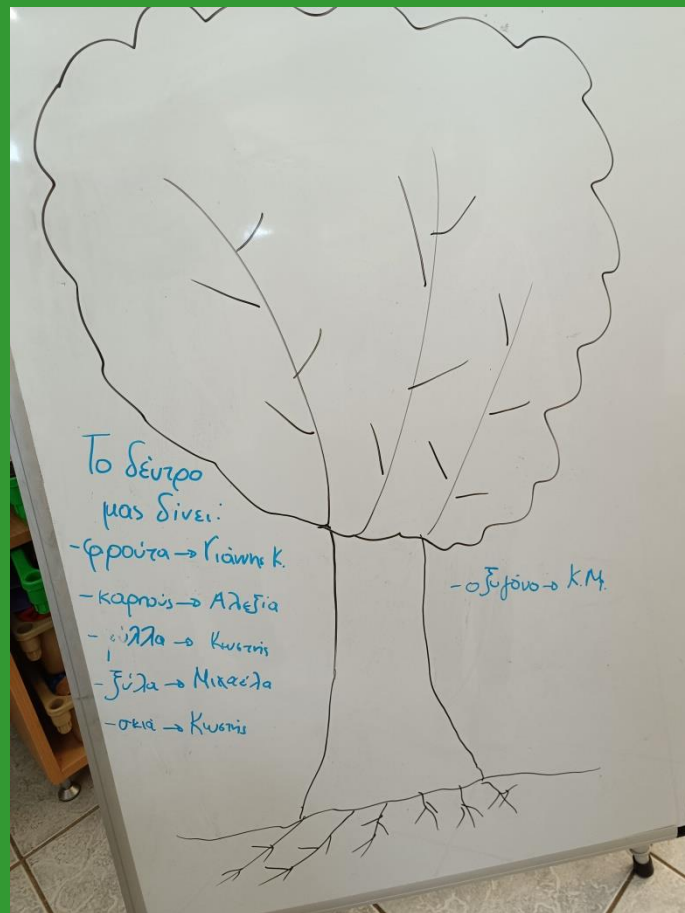 Το δέντρο
μας δίνει:
-φρούτα→Γιάννης Κ.
-καρπούς→Αλεξία
-φύλλα→Κωστής
-ξύλα→Μιχαέλα
-σκιά→Κωστής
-οξυγόνο→Κ.Μ.